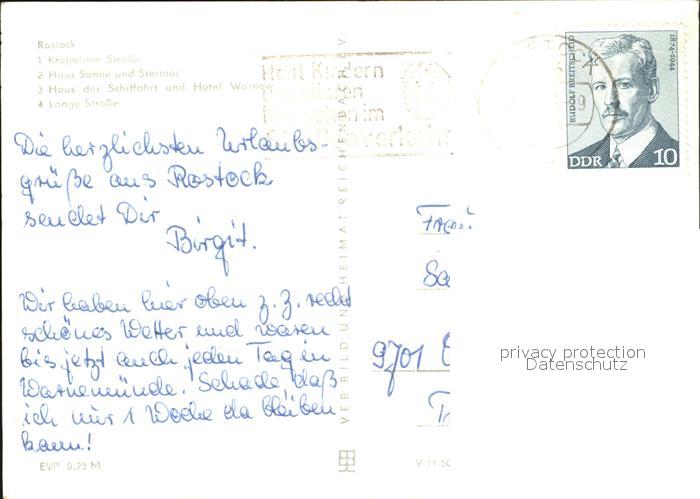 Rostock
1 Kröpeliner Straße
2 Haus Sonne und Steintor
3 Haus der Schiffahrt und Hotel Warnow
4 Lange Straße
Die herzlichsten Urlaubs-
grüße aus Rostock
sendet Dir
Birgit.
Wir haben hier oben z. Z. recht
schönes Wetter und waren
bis jetzt auch jeden Tag in
Warnemünde. Schade daß
ich nur 1 Woche da bleiben
kann!
EVP 0,25 M
VEB BILD UND HEIMAT REICHENBACH V
Kindern
im
RUDOLF BREITSCHEID
1874-1944
DDR 10
9701
privacy protection
Datenschutz
V 11 50